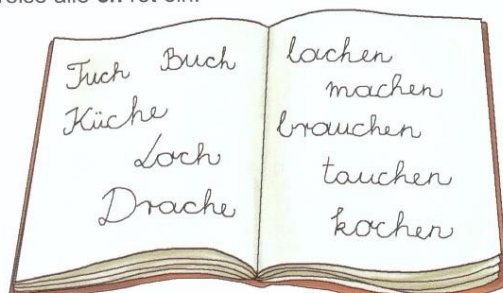 alle ein.
Tuch Buch
Küche
Loch
Drache
lachen
machen
brauchen
tauchen
kochen